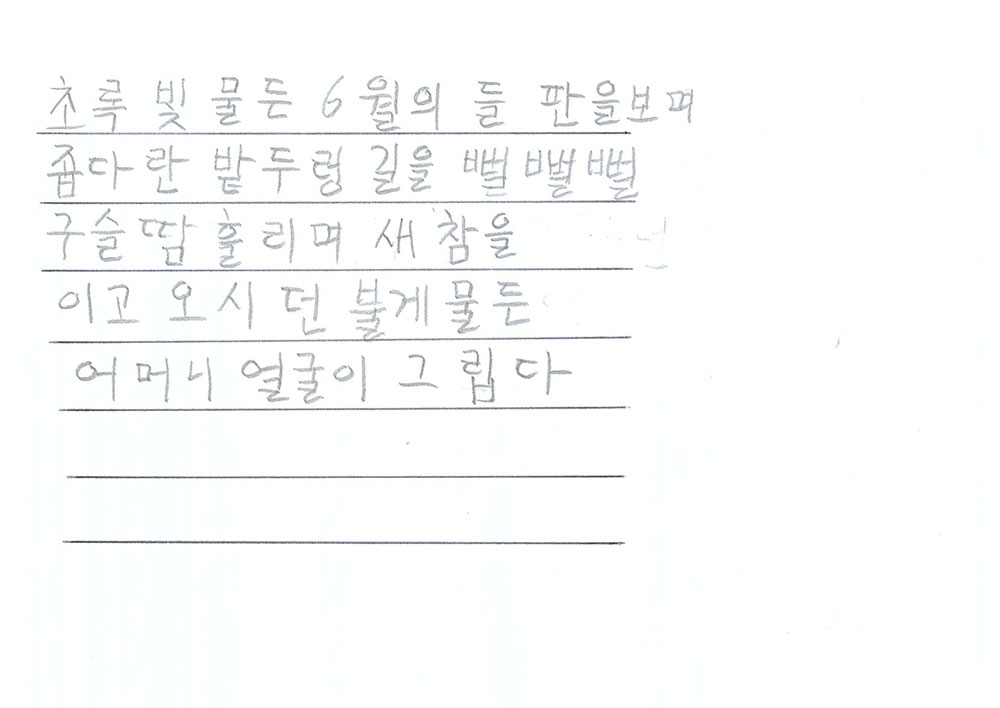 초록 빛 물든 6월의 들 판을보며
좁다란 밭두렁 길을 뻘 뻘뻘
구슬땀 흘리며 새참을
이고 오시던 붉게물든
어머니 얼굴이 그립다